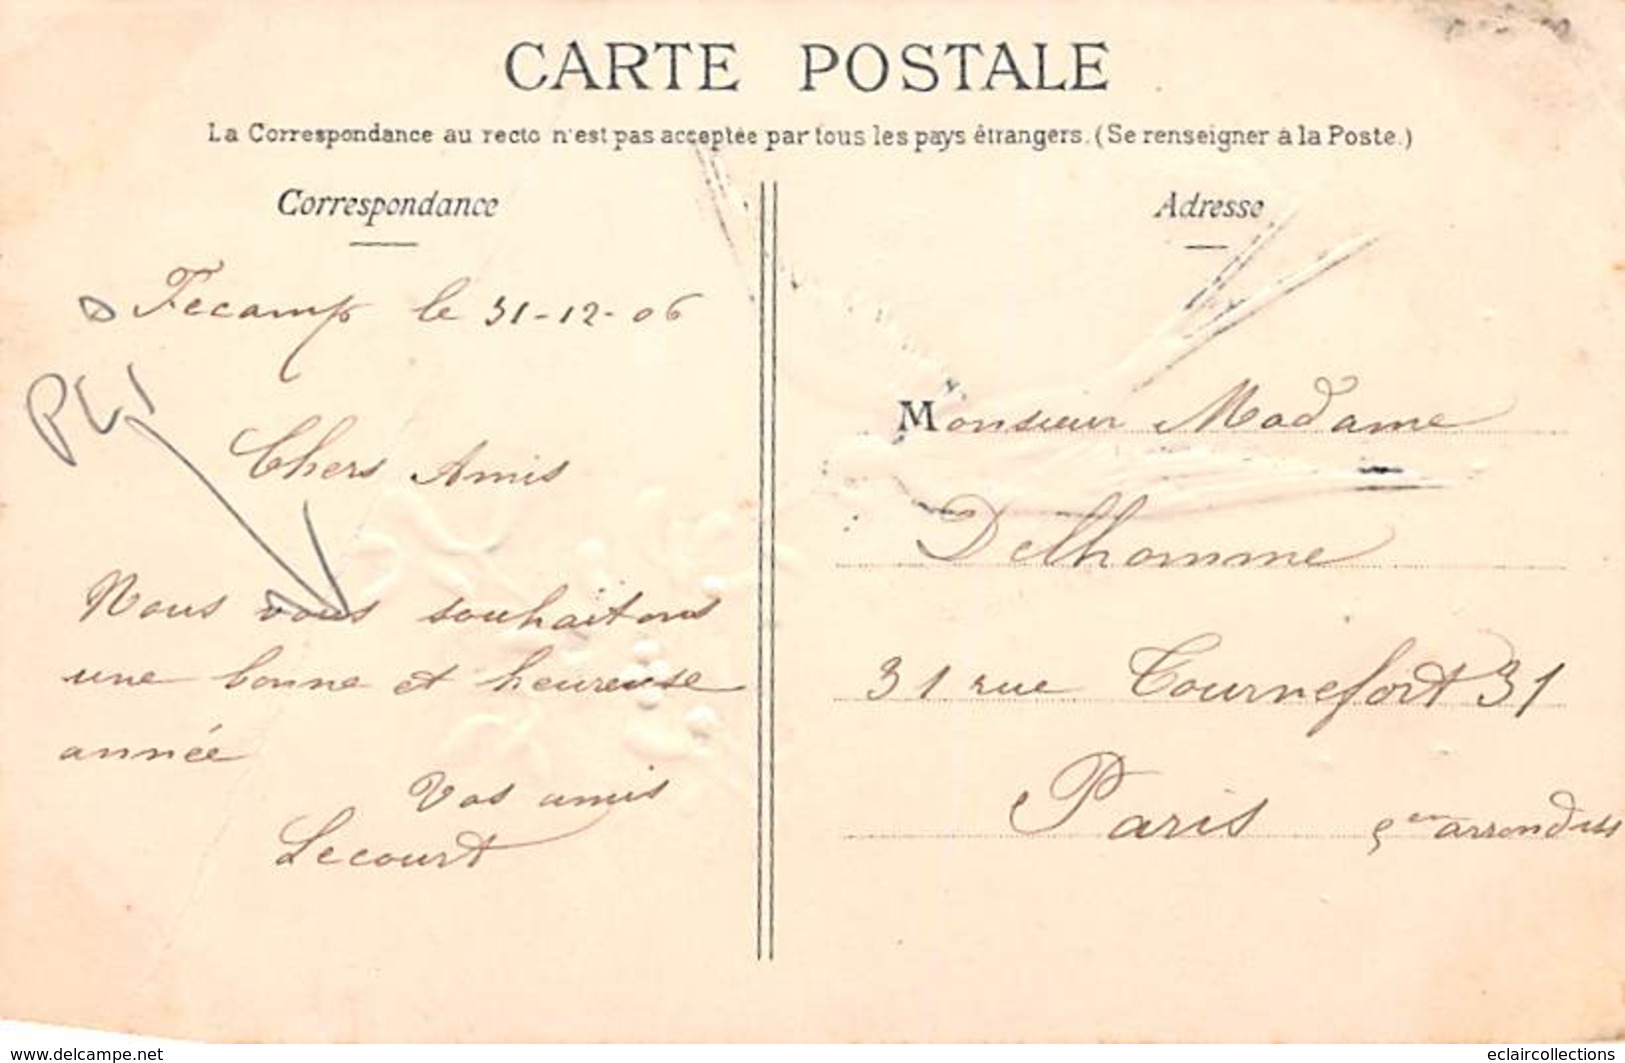 CARTE POSTALE
La Correspondance au recto n'est pas acceptée par tous les pays étrangers. (Se renseigner à la Poste.)
Correspondance
Fecamp le 31-12-06
PLI
Chers Amis
Nous vous souhaitons
une bonne et heureuse
année
Vos amis
Lecourt
Adresse
Monsieur Madame
Delhomme
31 rue Tournefort 31
Paris 5em arrondiss
www.delcampe.net
eclaircollections